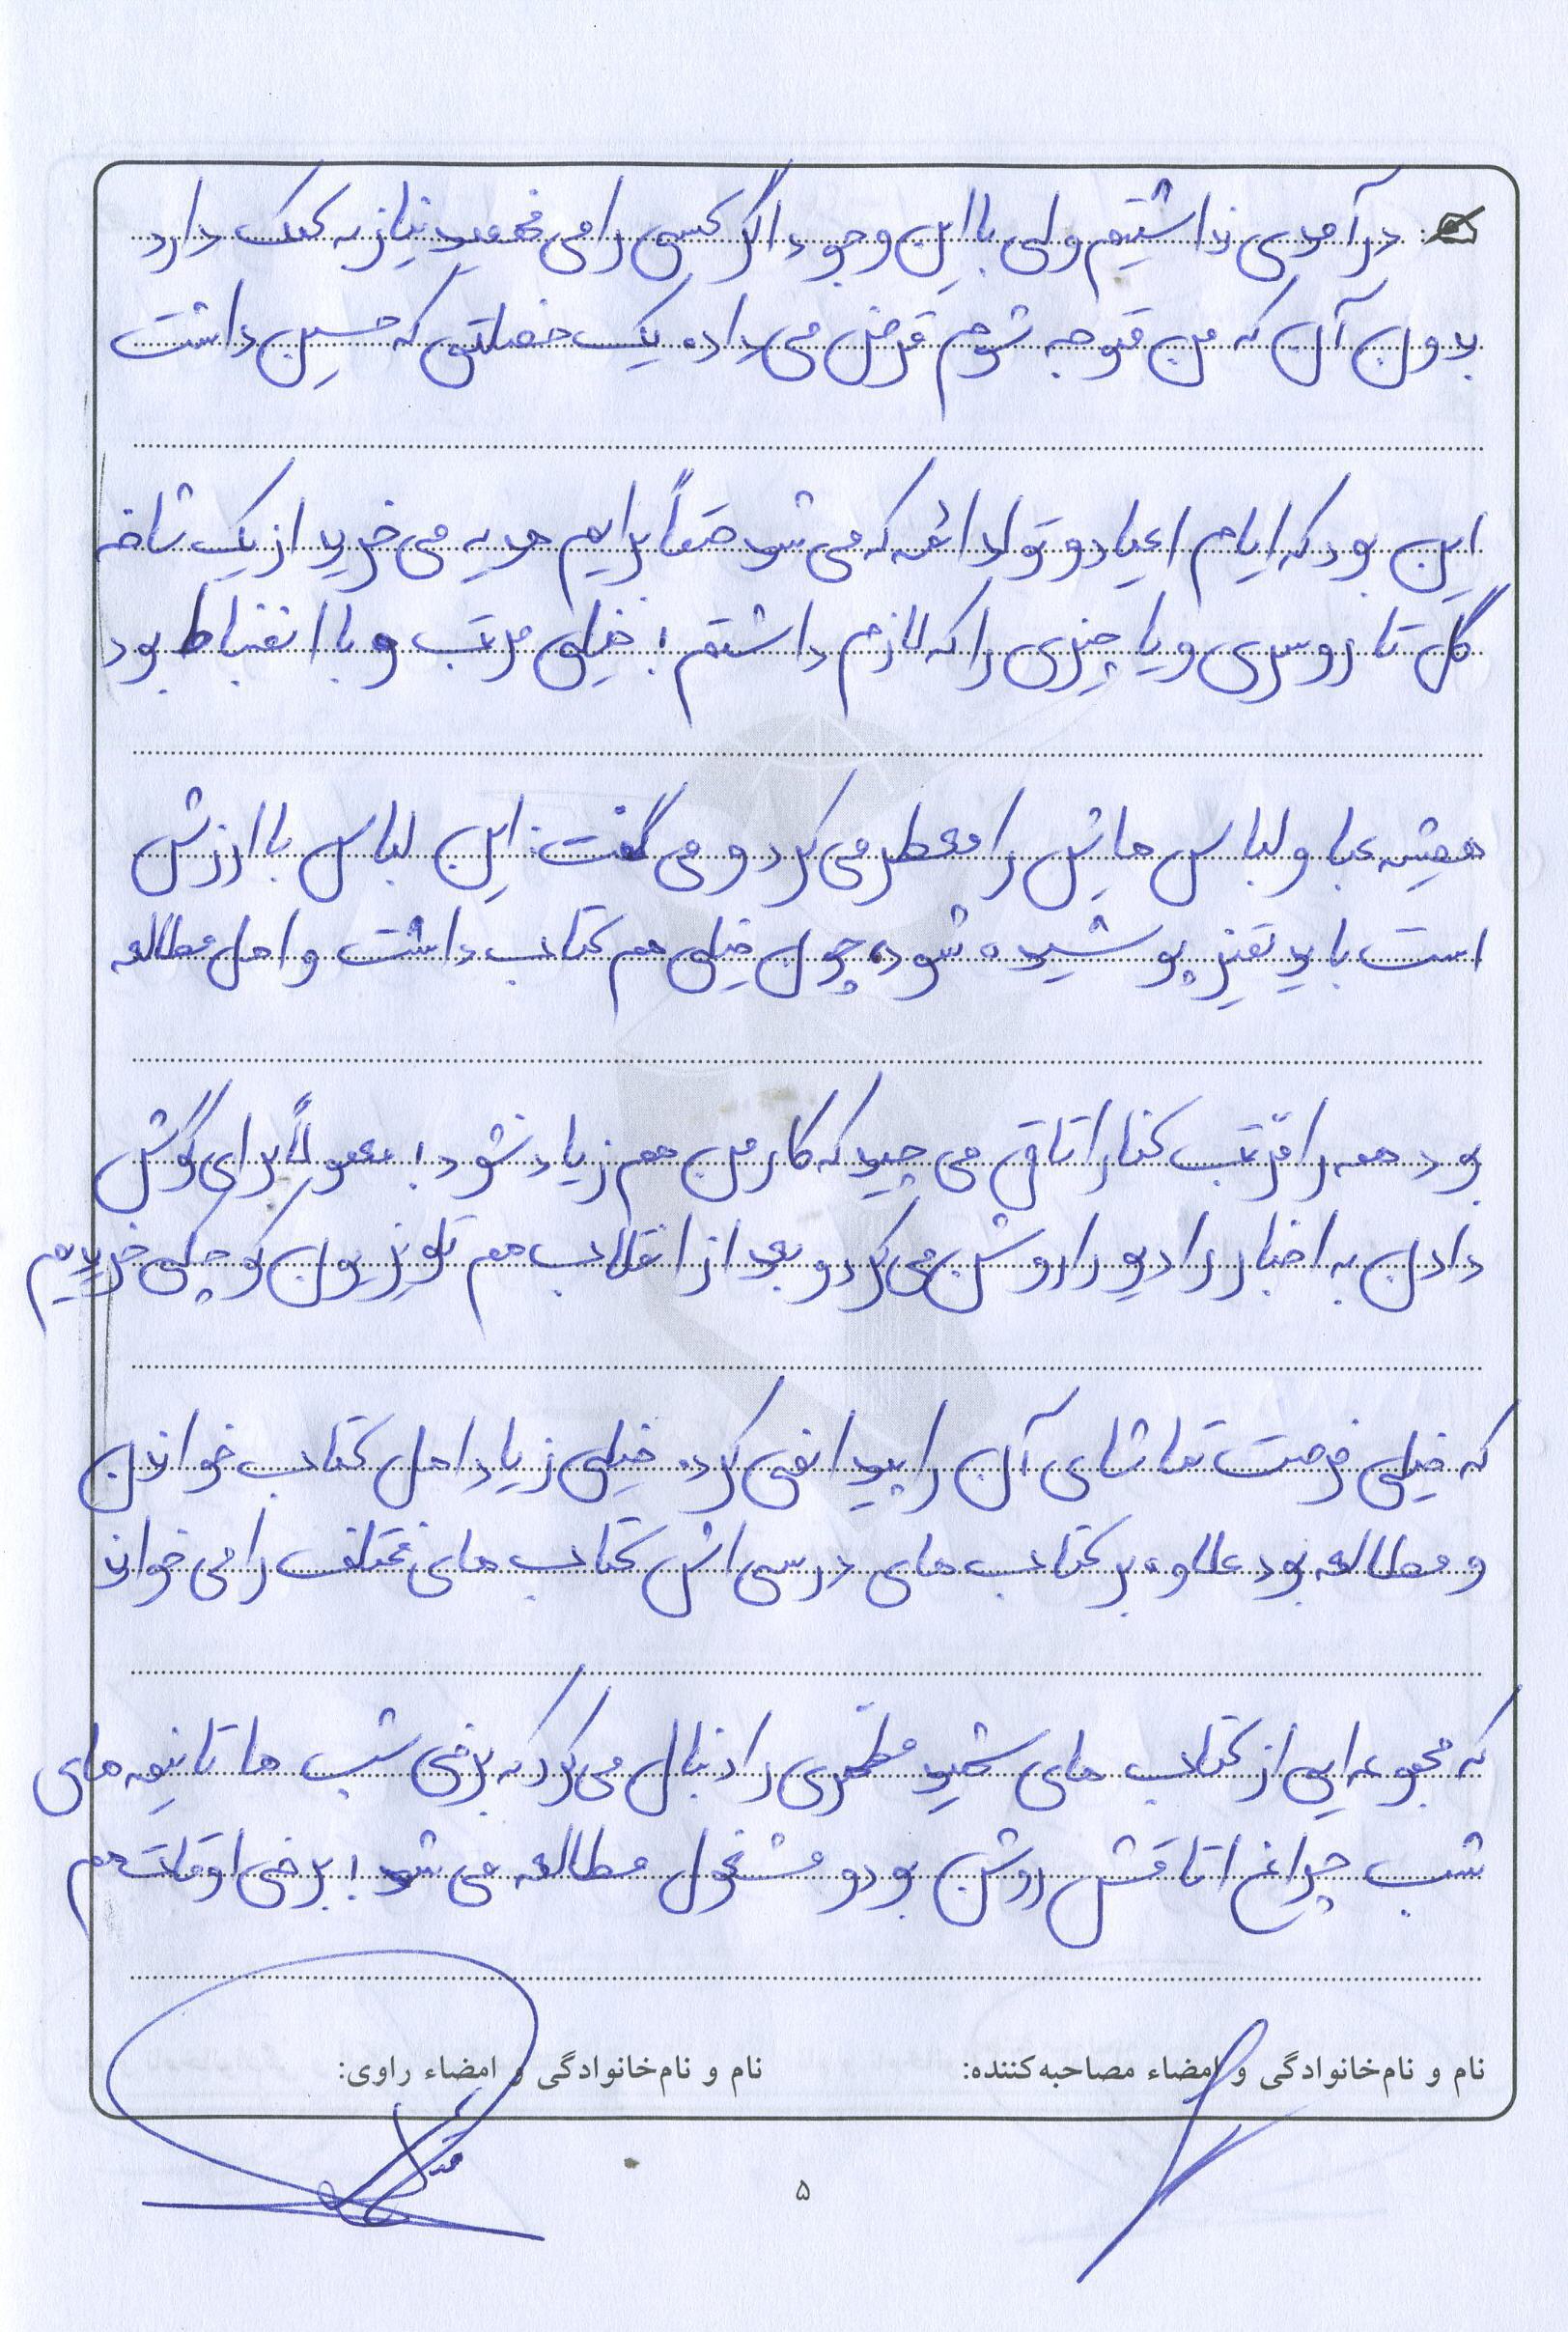 درآمدی نداشتیم ولی با این وجود اگر کسی را می فهمید نیاز به کمک دارد
بدون آن که من متوجه شوم قرض می داد. یک خصلتی که حسین داشت
این بود که ایام اعیاد و تولد ائمه که می شد حتماً برایم هدیه می خرید از یک شاخه
گل تا روسری و یا چیزی را که لازم داشتم؛ خیلی مرتب و با انضباط بود
همیشه عبا و لباس هایش را معطر می کرد و می گفت: این لباس با ارزش
است باید تمیز پوشیده شود، چون خیلی هم کتاب داشت و اهل مطالعه
بود همه را مرتب کنار اتاق می چید که کار من هم زیاد نشود؛ معمولاً برای گوش
دادن به اخبار رادیو را روشن می کرد و بعد از انقلاب هم تلوزیون کوچکی خریدیم
که خیلی فرصت تماشای آن را پیدا نمی کرد. خیلی زیاد اهل کتاب خواندن
و مطالعه بود علاوه بر کتاب های درسی اش کتاب های مختلف را می خواند
که مجموعه ایی از کتاب های شهید مطهری را دنبال می کرد که برخی شب ها تا نیمه های
شب چراغ اتاقش روشن بود و مشغول مطالعه می شد؛ برخی اوقات هم
نام و نام‌خانوادگی و امضاء مصاحبه‌کننده: نام و نام‌خانوادگی و امضاء راوی:
۵